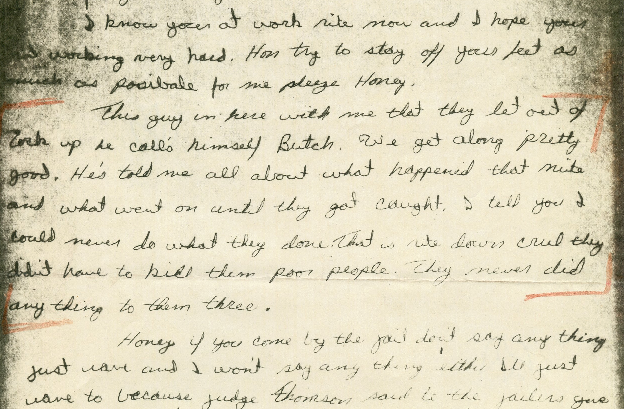 I know youer at work rite now and I hope your
not working very hard. Hon try to stay off your feet as
much as posibale for me pleze Honey.
This guy in here with me that they let out of
Lock up he calls himself Butch. We get along pretty
good. He's told me all about what happenid that nite
and what went on until they got caught. I tell you I
could never do what they done. That is rite down cruel they
didn't have to kill them poor people. They never did
any thing to them three.
Honey if you come by the jail don't say any thing
just wave and I won't say any thing I'll just
wave to because judge Thomson said to the jailers